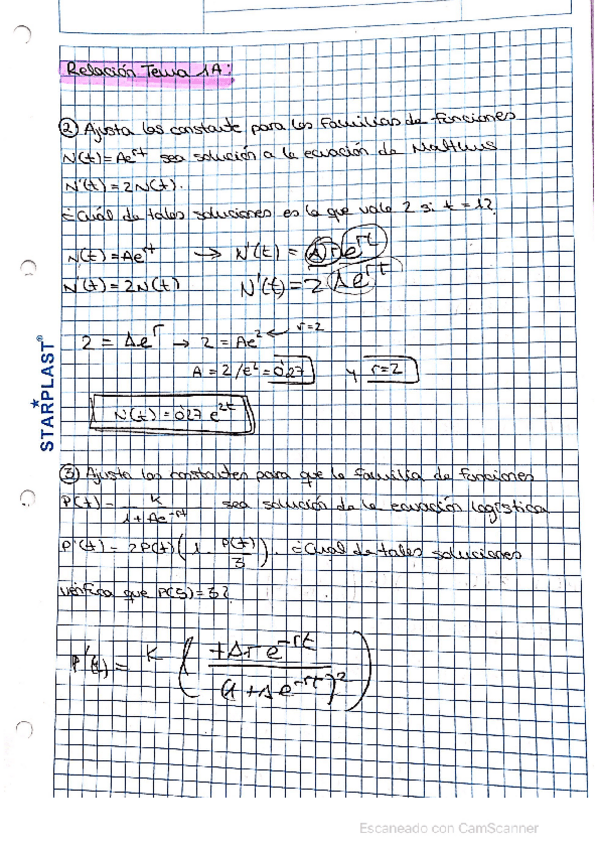 Relación Tema 1A:
② Ajusta las constante para las familias de funciones
N(t) = Ae^rt sea solución a la ecuación de Malthus
N'(t) = 2N(t).
¿Cuál de tales soluciones es la que vale 2 si t = 1?
N(t) = Ae^rt → N'(t) = A r e^rt
N'(t) = 2N(t) N'(t) = 2 A e^rt
2 = Ae^r → 2 = Ae^2 ← r=2
A = 2/e^2 = 0'27 y r=2
N(t) = 0'27 e^2t
STARPLAST®
③ Ajusta las constantes para que la familia de funciones
P(t) = K / (1 + Ae^-rt) sea solución de la ecuación logística
P'(t) = 2P(t) (1 - P(t)/3). ¿Cual de tales soluciones
verifica que P(5) = 3?
P'(t) = K ( +A r e^-rt / (1 + A e^-rt)^2 )
Escaneado con CamScanner